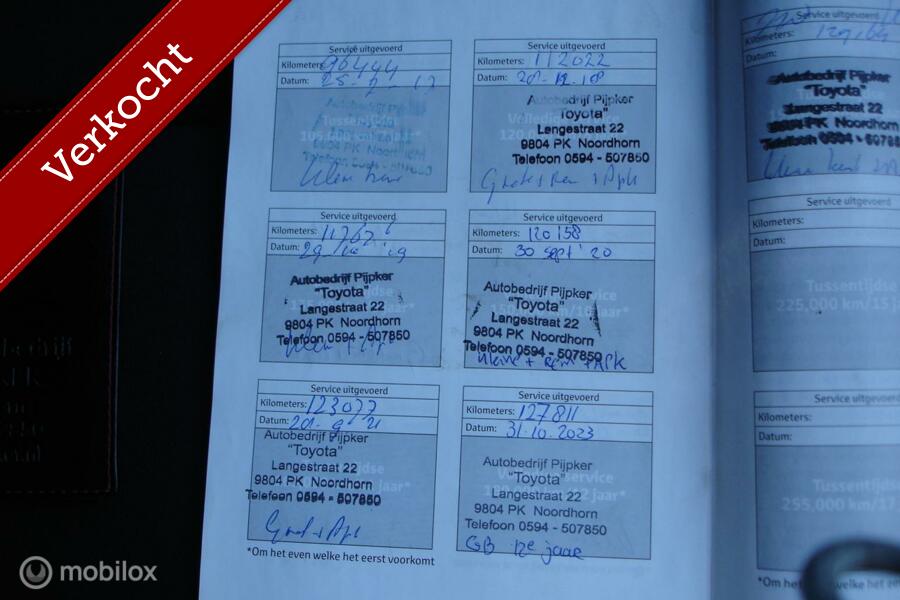 Verkocht
Service uitgevoerd
Kilometers: 96444
Datum: 25-9-17
Autobedrijf Pijpker
Tussentijdse
Langestraat 22
9804 PK Noordhorn
Telefoon 0594 - 507850
Service uitgevoerd
Kilometers: 112022
Datum:
Autobedrijf Pijpker
"Toyota"
Langestraat 22
9804 PK Noordhorn
Telefoon 0594 - 507850
Service uitgevoerd
Kilometers:
Datum:
Autobedrijf Pijpker
"Toyota"
Langestraat 22
9804 PK Noordhorn
Telefoon 0594 - 507850
Service uitgevoerd
Kilometers: 117676
Datum:
Autobedrijf Pijpker
"Toyota"
Langestraat 22
9804 PK Noordhorn
Telefoon 0594 - 507850
Service uitgevoerd
Kilometers: 120158
Datum: 30 sept '20
Autobedrijf Pijpker
"Toyota"
Langestraat 22
9804 PK Noordhorn
Telefoon 0594 - 507850
Kleine + Rem + APK
Service uitgevoerd
Kilometers:
Datum:
Tussentijdse
225,000 km/15
Service uitgevoerd
Kilometers: 123077
Datum:
Autobedrijf Pijpker
"Toyota"
Langestraat 22
9804 PK Noordhorn
Telefoon 0594 - 507850
Service uitgevoerd
Kilometers: 127811
Datum: 31-10-2023
Autobedrijf Pijpker
"Toyota"
Langestraat 22
9804 PK Noordhorn
Telefoon 0594 - 507850
GB 12e jaar
Service uitgevoerd
Kilometers:
Datum:
Tussentijdse
255,000 km/17
*Om het even welke het eerst voorkomt
*Om het even welke het eer
mobilox